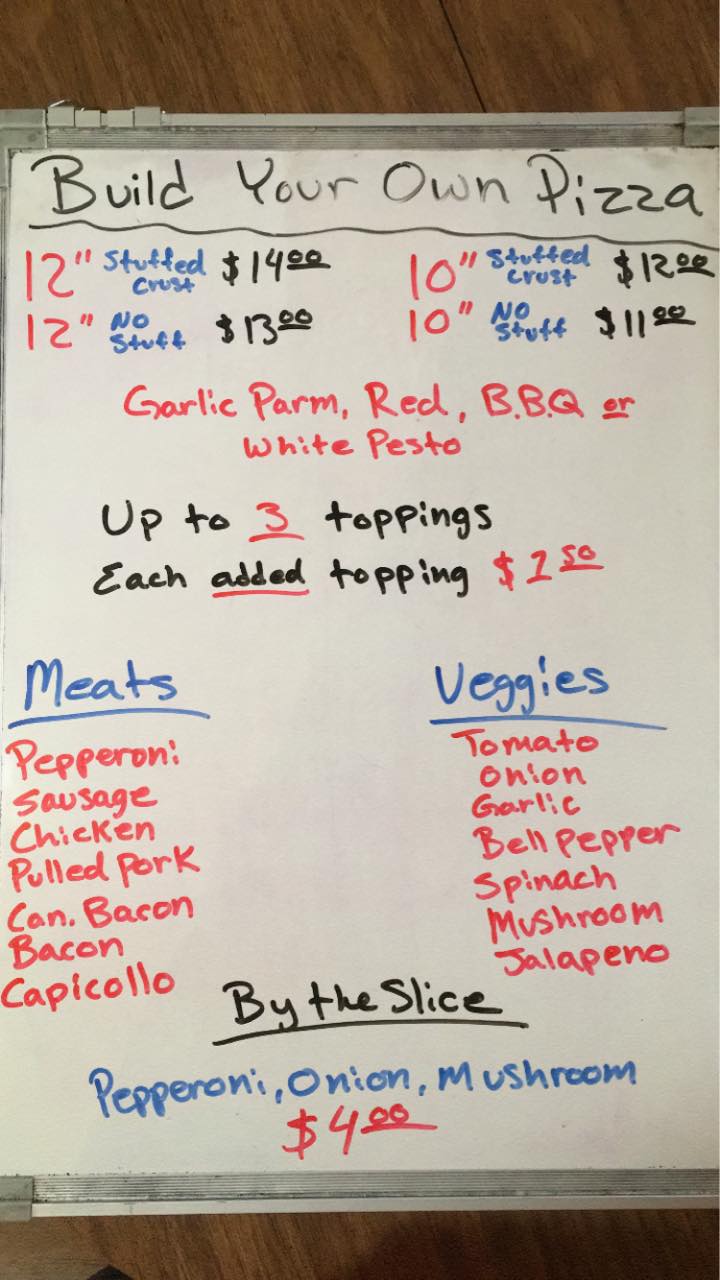 Build Your Own Pizza
12" Stuffed Crust $14.00
10" Stuffed Crust $12.00
12" No Stuff $13.00
10" No Stuff $11.00
Garlic Parm, Red, B.B.Q or
White Pesto
Up to 3 toppings
Each added topping $1.50
Meats
Pepperoni
Sausage
Chicken
Pulled Pork
Can. Bacon
Bacon
Capicollo
Veggies
Tomato
Onion
Garlic
Bell Pepper
Spinach
Mushroom
Jalapeno
By the Slice
Pepperoni, Onion, Mushroom
$4.00